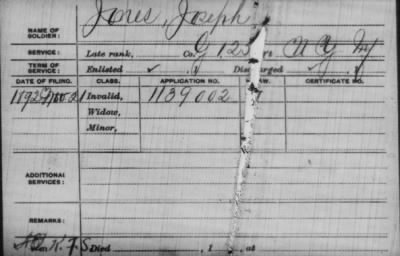 NAME OF SOLDIER: Jones, Joseph
SERVICE: Late rank, Co. G, 125 N Y
TERM OF SERVICE: Enlisted Discharged
DATE OF FILING. CLASS. APPLICATION NO. LAW. CERTIFICATE NO.
1892 Nov. 21 Invalid, 1139002
Widow,
Minor,
ADDITIONAL SERVICES:
REMARKS:
Died , 1 , at